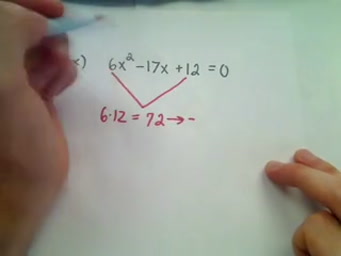 x) 6x² -17x +12 = 0
6·12 = 72 → -